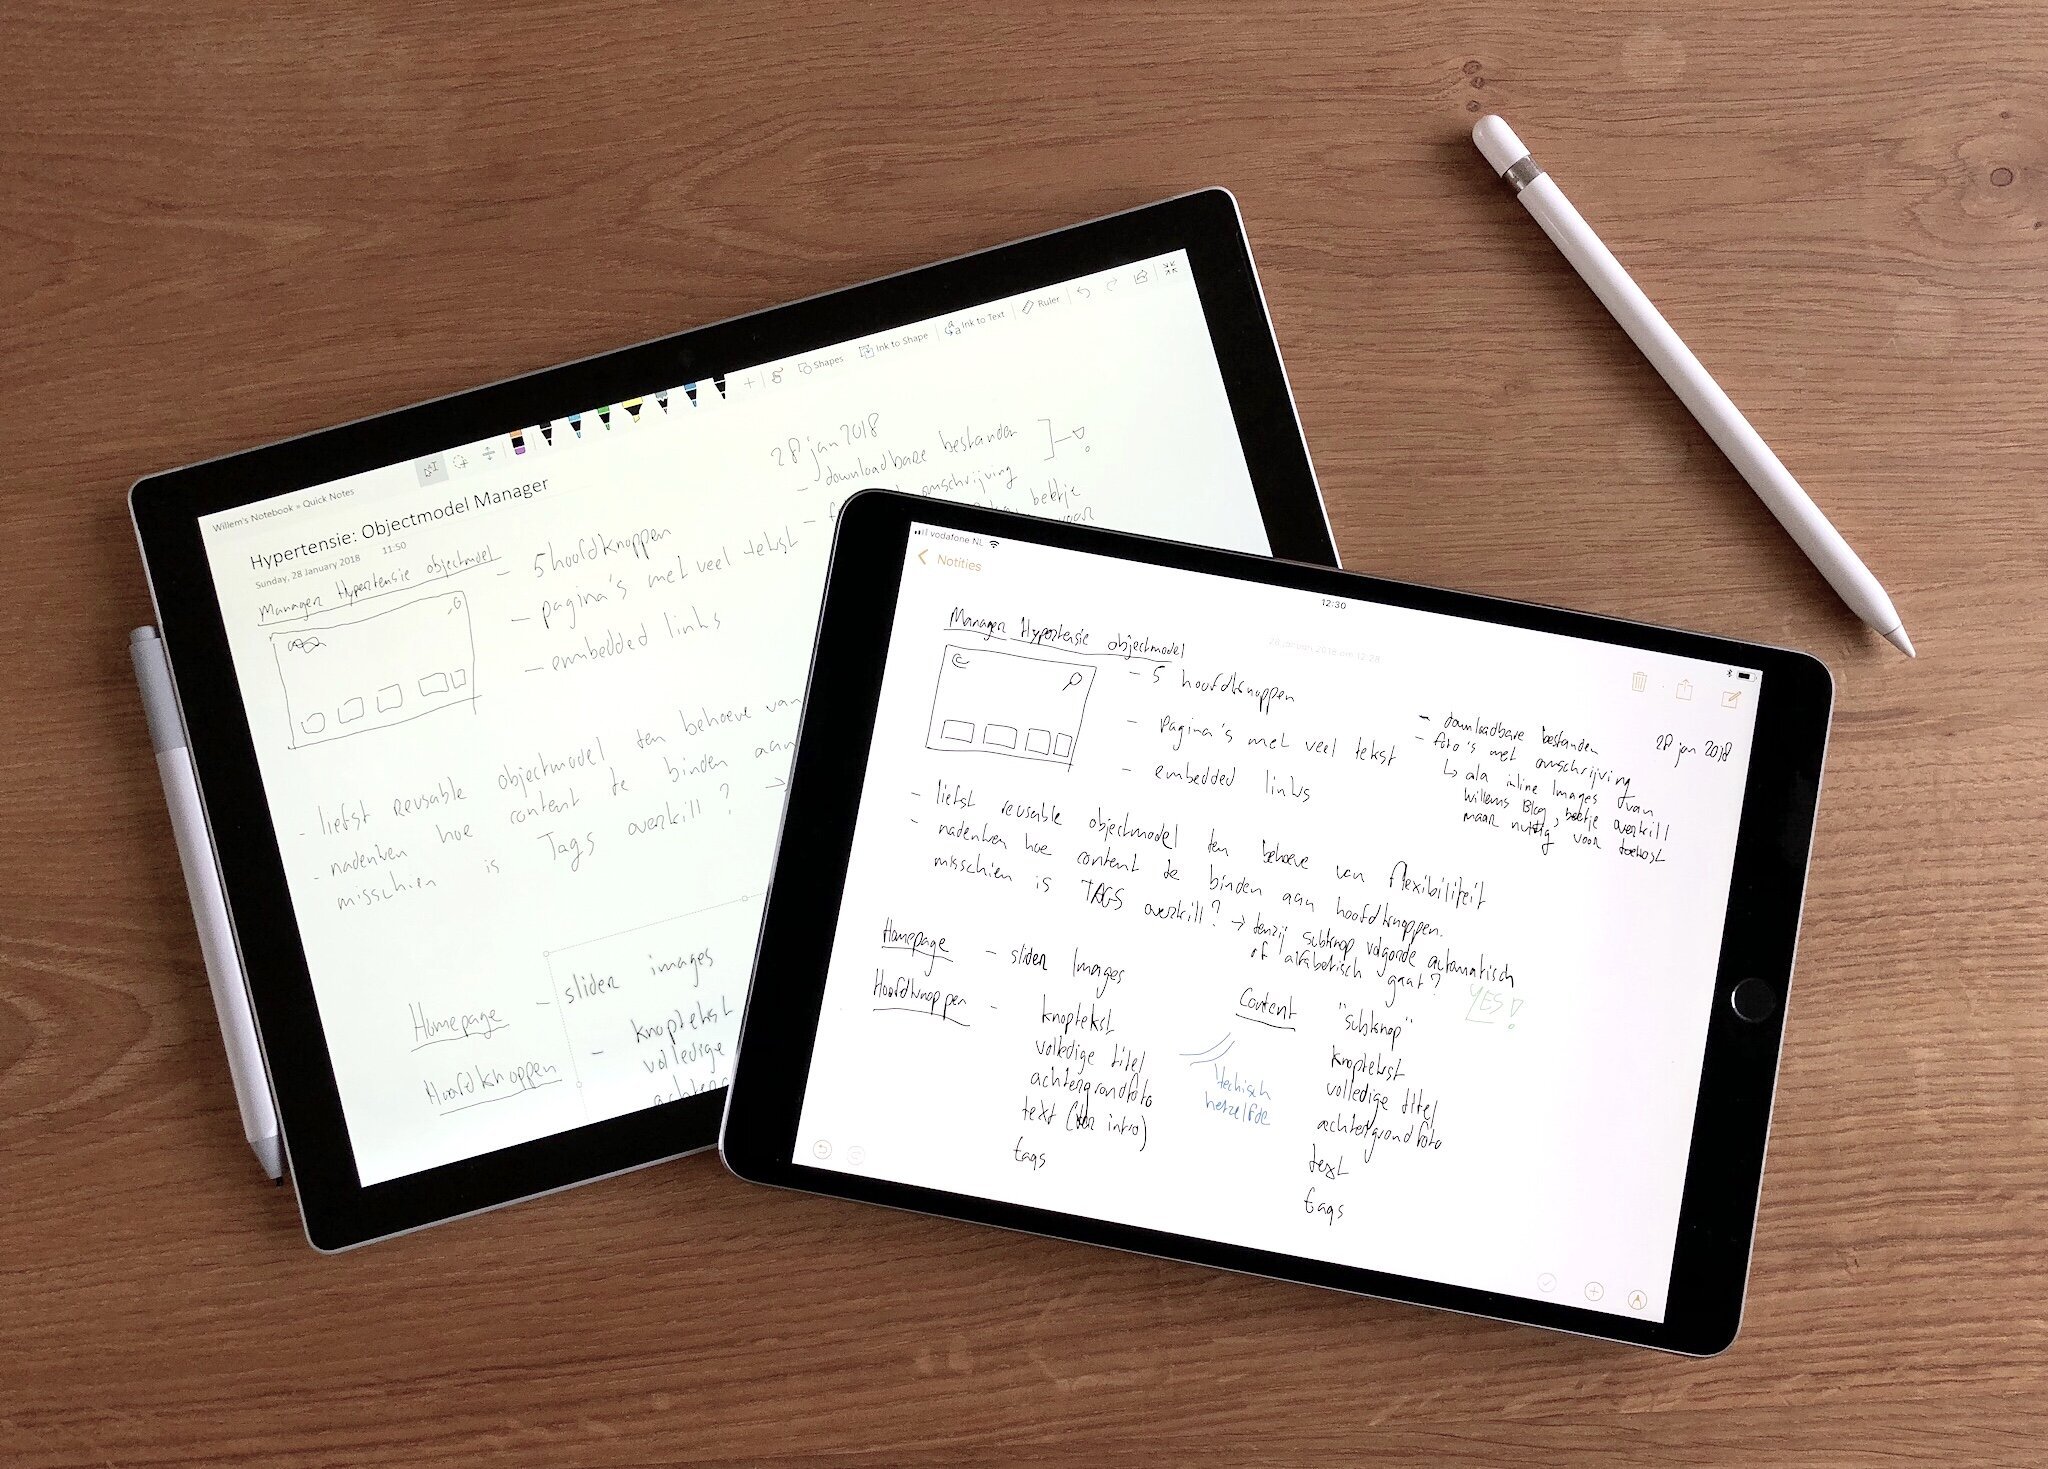 Willem's Notebook » Quick Notes
Shapes
Ink to Shape
Ink to Text
Ruler
Hypertensie: Objectmodel Manager
Sunday, 28 January 2018 11:50
28 jan 2018
Manager Hypertensie objectmodel
- 5 hoofdknoppen
- pagina's met veel tekst
- embedded links
- downloadbare bestanden
omschrijving
beetje
voor
- liefst reusable objectmodel ten behoeve van
- nadenken hoe content te binden aan
misschien is Tags overkill? →
Homepage - slider images
Hoofdknoppen - knoptekst
volledige
vodafone NL
Notities
12:30
28 januari 2018 om 12:28
Manager Hypertensie objectmodel
- 5 hoofdknoppen
- pagina's met veel tekst
- embedded links
- downloadbare bestanden
28 jan 2018
- foto's met omschrijving
↳ ala inline Images van
Willems Blog, beetje overkill
maar nuttig voor toekost
- liefst reusable objectmodel ten behoeve van flexibiliteit
- nadenken hoe content te binden aan hoofdknoppen.
misschien is TAGS overkill? → tenzij subknop volgorde automatisch
of alfabetisch gaat?
YES!
Homepage - slider Images
Hoofdknoppen - knoptekst
volledige titel
achtergrondfoto
text (voor intro)
tags
technisch
hetzelfde
Content "subknop"
knoptekst
volledige titel
achtergrondfoto
text
tags